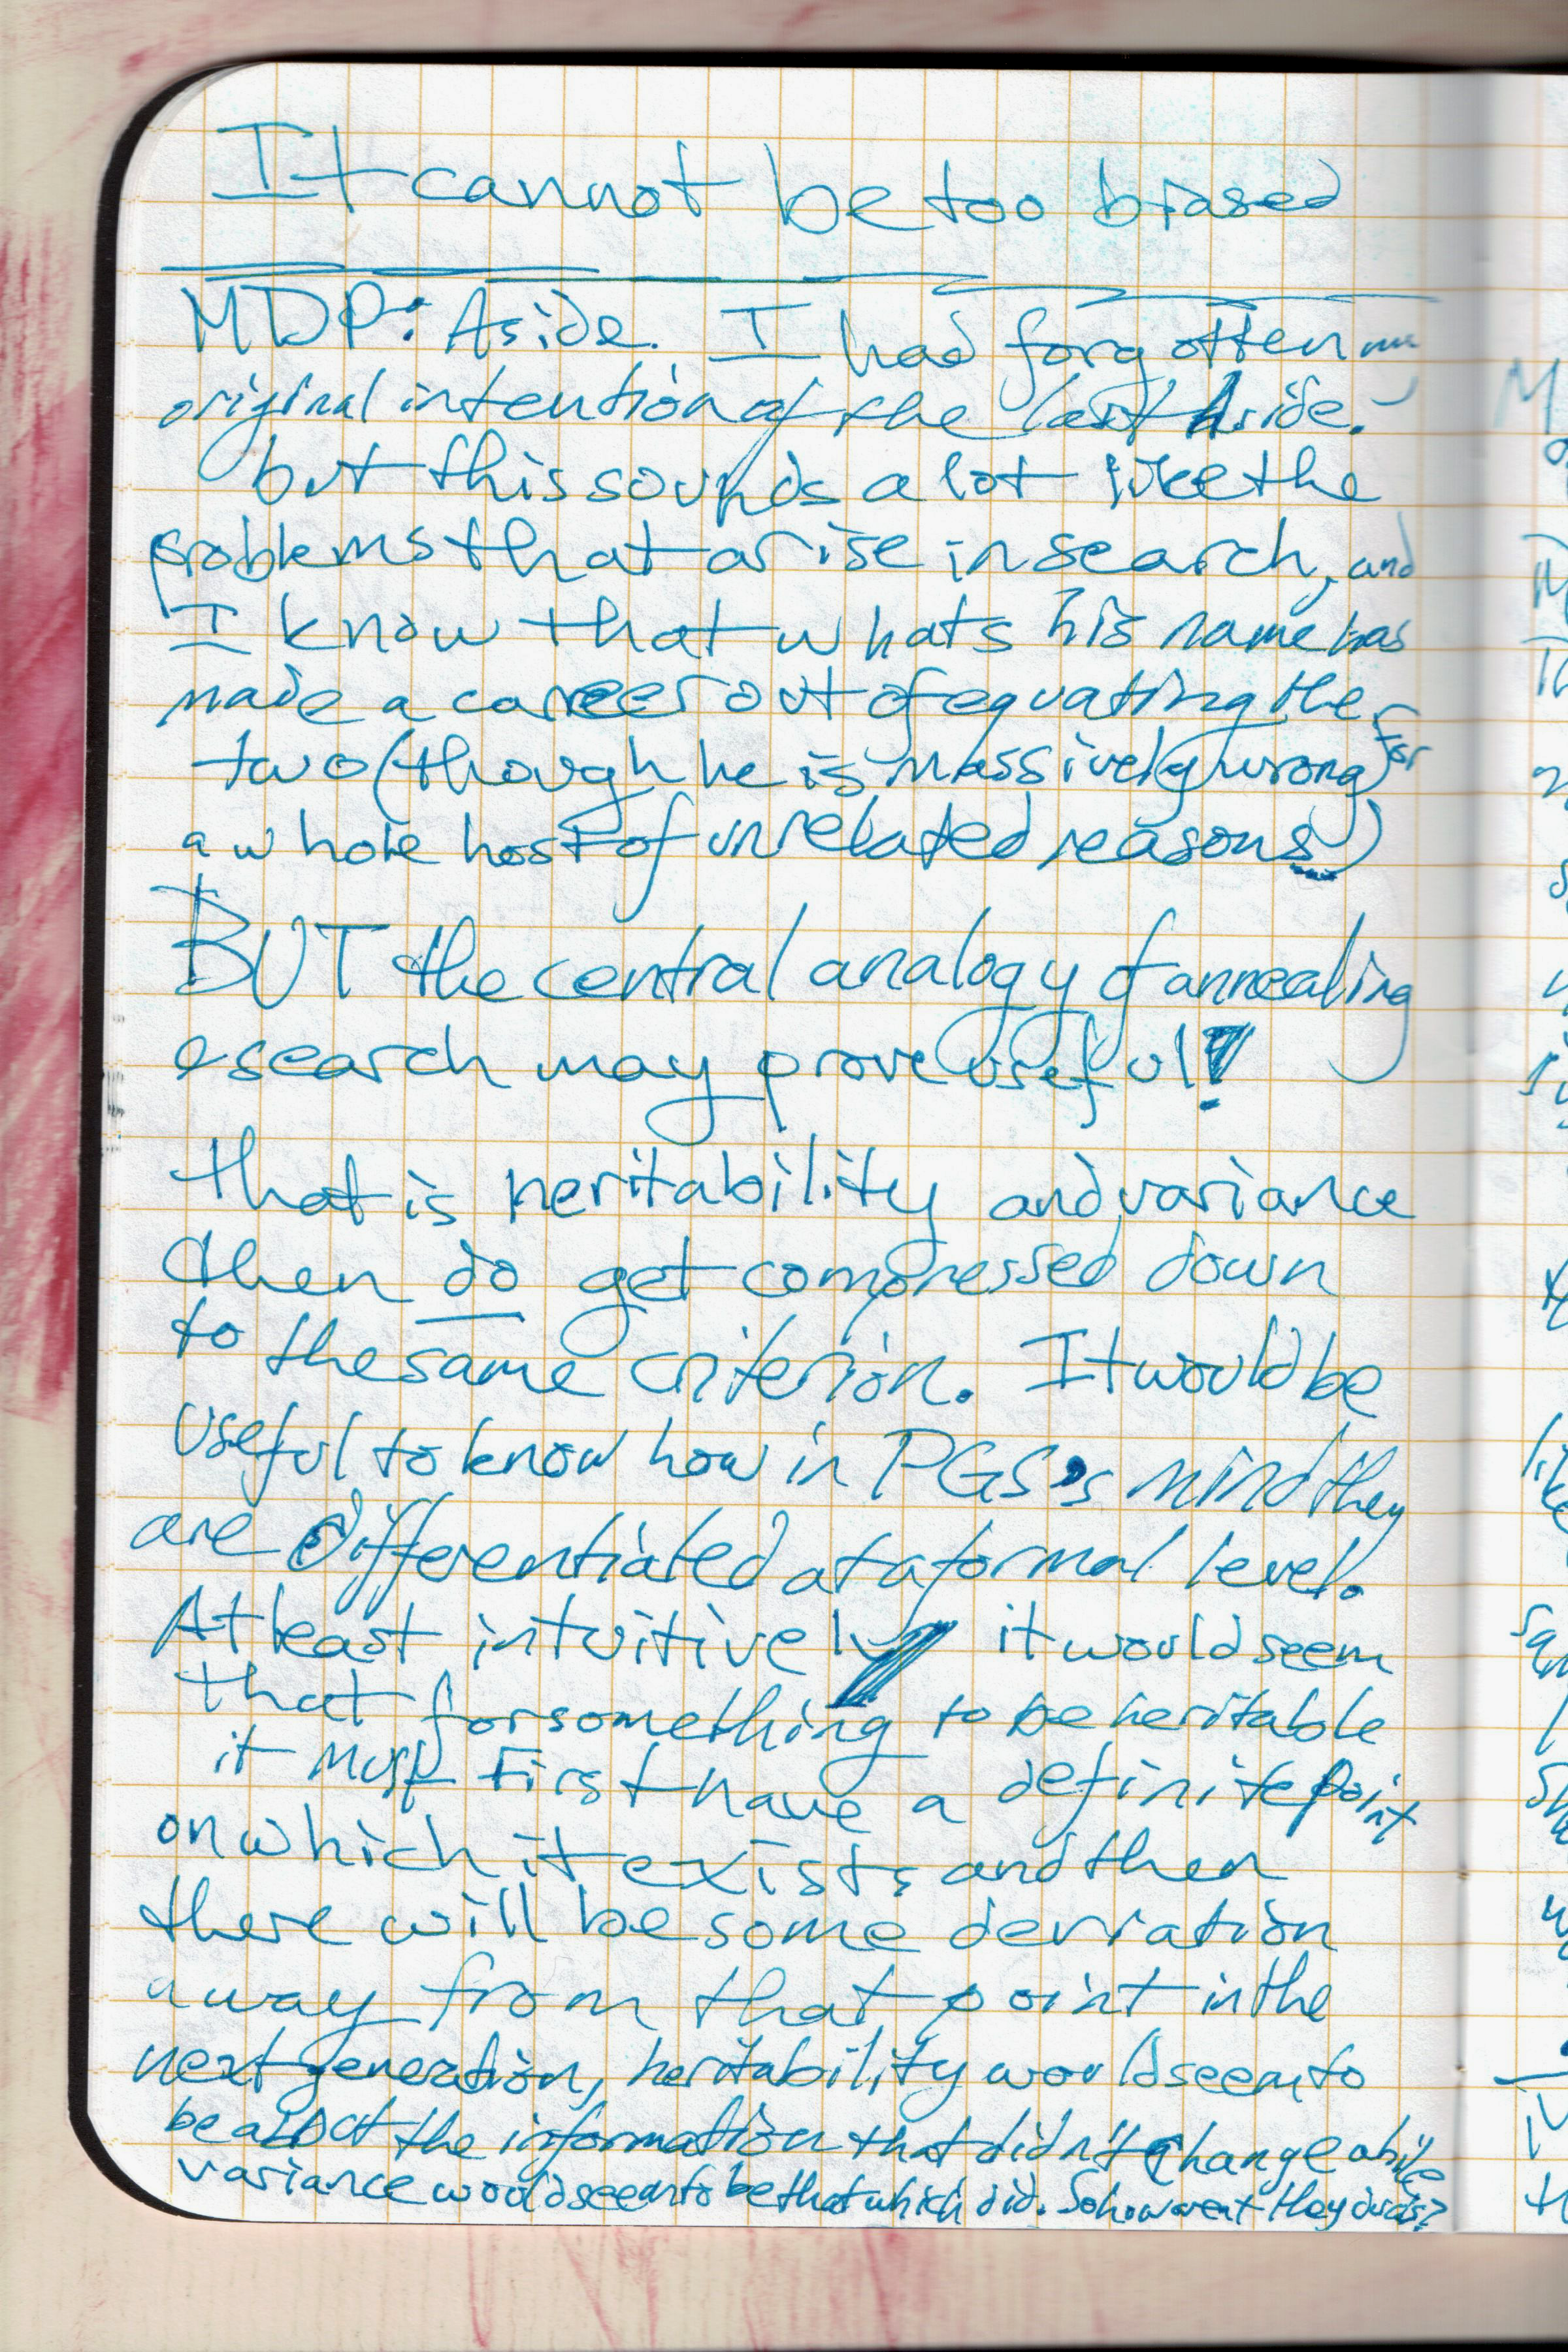 It cannot be too biased
MDP: Aside. I had forgotten my
original intention of the last Aside.
but this sounds a lot like the
problems that arise in search, and
I know that whats his name has
made a career out of equating the
two (though he is massively wrong for
a whole host of unrelated reasons)
BUT the central analogy of annealing
search may prove useful!
that is heritability and variance
then do get compressed down
to the same criterion. It would be
useful to know how in PGS's mind they
are differentiated at a formal level.
At least intuitively it would seem
that for something to be heritable
it must first have a definite point
on which it exists and then
there will be some deviation
away from that point in the
next generation, heritability would seem to
be about the information that didn't change while
variance would seem to be that which did. So how aren't they duals?